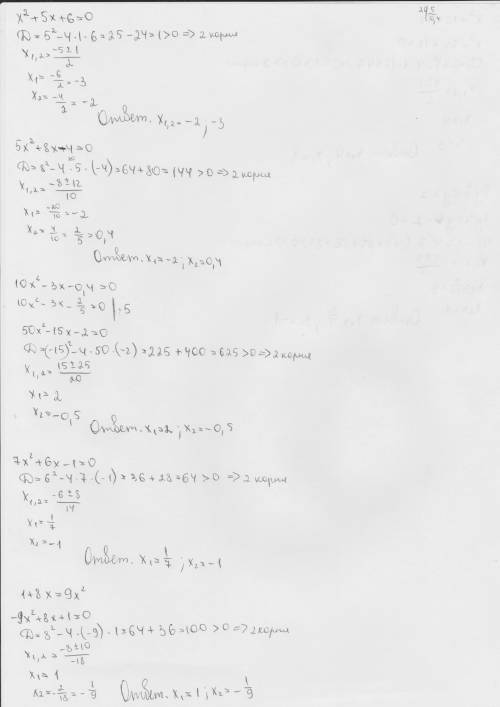 x² + 5x + 6 = 0
D = 5² - 4·1·6 = 25 - 24 = 1 > 0 => 2 корня
x₁,₂ = (-5 ± 1)/2
x₁ = -6/2 = -3
x₂ = -4/2 = -2
Ответ. x₁,₂ = -2; -3
5x² + 8x - 4 = 0
D = 8² - 4·5·(-4) = 64 + 80 = 144 > 0 => 2 корня
x₁,₂ = (-8 ± 12)/10
x₁ = -20/10 = -2
x₂ = 4/10 = 2/5 = 0,4
Ответ. x₁ = -2; x₂ = 0,4
10x² - 3x - 0,4 = 0
10x² - 3x - 2/5 = 0 | ·5
50x² - 15x - 2 = 0
D = (-15)² - 4·50·(-2) = 225 + 400 = 625 > 0 => 2 корня
x₁,₂ = (15 ± 25)/20
x₁ = 2
x₂ = -0,5
Ответ. x₁ = 2; x₂ = -0,5
7x² + 6x - 1 = 0
D = 6² - 4·7·(-1) = 36 + 28 = 64 > 0 => 2 корня
x₁,₂ = (-6 ± 8)/14
x₁ = 1/7
x₂ = -1
Ответ. x₁ = 1/7; x₂ = -1
1 + 8x = 9x²
-9x² + 8x + 1 = 0
D = 8² - 4·(-9)·1 = 64 + 36 = 100 > 0 => 2 корня
x₁,₂ = (-8 ± 10)/-18
x₁ = 1
x₂ = -2/18 = -1/9
Ответ. x₁ = 1; x₂ = -1/9